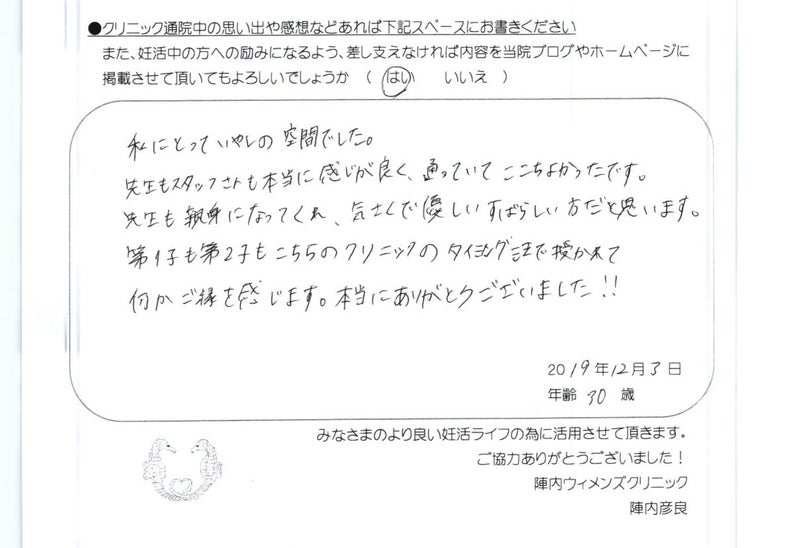 ●クリニック通院中の思い出や感想などあれば下記スペースにお書きください
また、妊活中の方への励みになるよう、差し支えなければ内容を当院ブログやホームページに
掲載させて頂いてもよろしいでしょうか ( はい いいえ )
私にとっていやしの空間でした。
先生もスタッフさんも本当に感じが良く、通っていてここちよかったです。
先生も親身になってくれ、気さくで優しいすばらしい方だと思います。
第1子も第2子もこちらのクリニックのタイミング法で授かれて
何かご縁を感じます。本当にありがとうございました!!
2019年12月3日
年齢 30 歳
みなさまのより良い妊活ライフの為に活用させて頂きます。
ご協力ありがとうございました!
陣内ウィメンズクリニック
陣内彦良